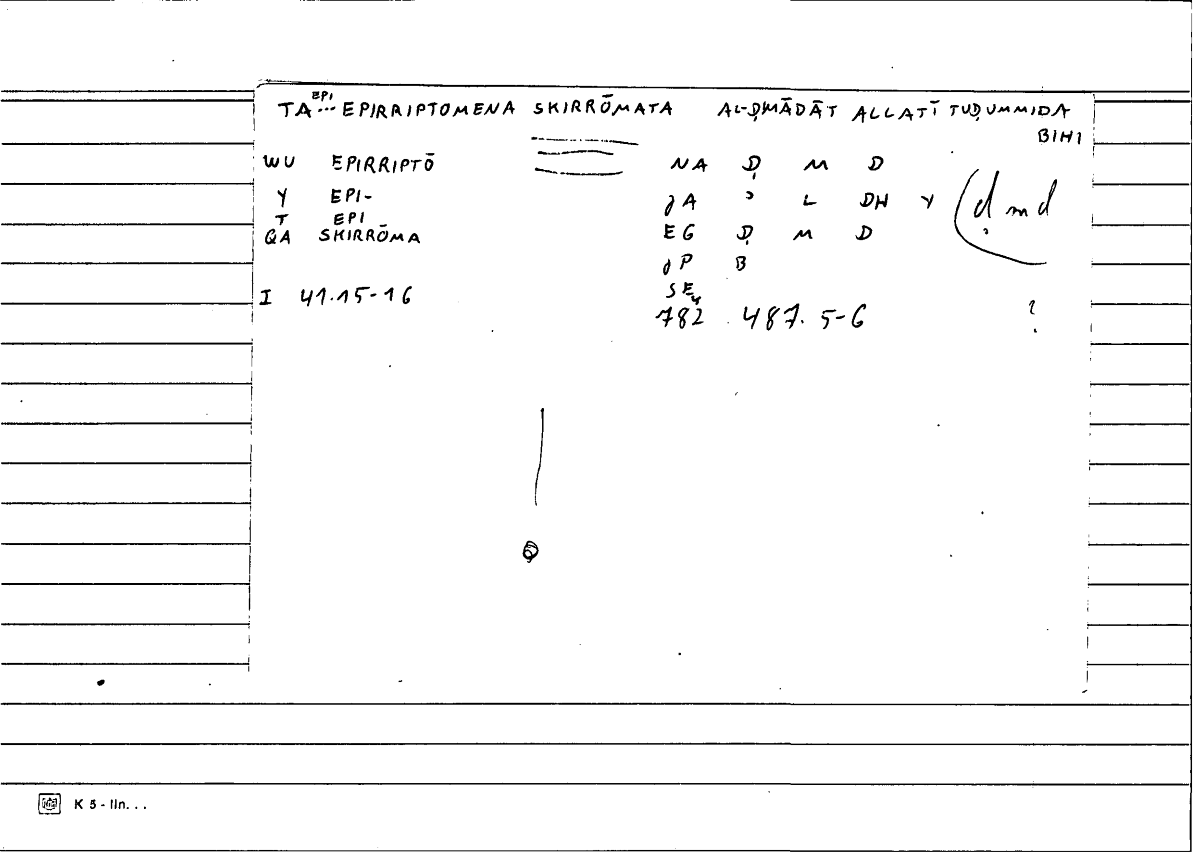 TA EPI... EPIRRIPTOMENA SKIRRŌMATA AL-ḌMĀDĀT ALLATĪ TUḌUMMIDA
BIHI
WU EPIRRIPTŌ NA Ḍ M D
Y EPI- JA ʾ L DH Y (ḍ m d
T EPI
QA SKIRRŌMA EG Ḍ M D
JP B
SE4
I 41.15-16
782 487.5-6 ?
K 5 - lin...